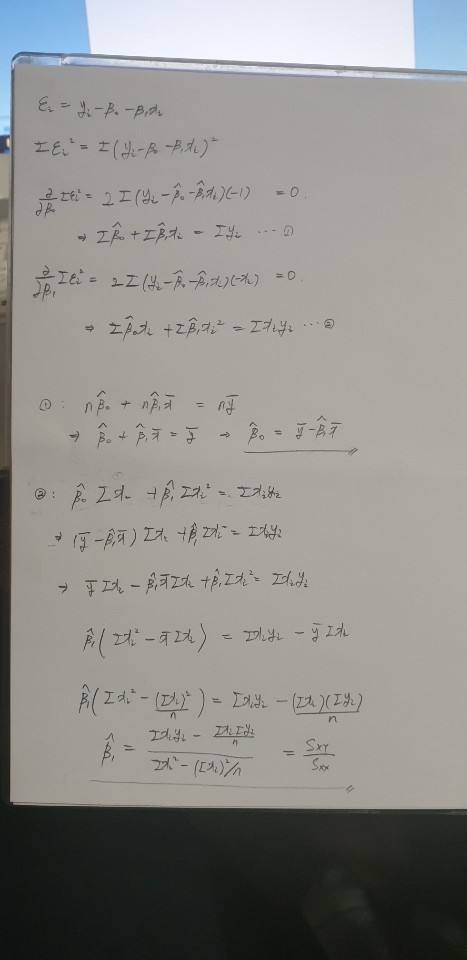 εᵢ = yᵢ - β₀ - β₁xᵢ
Σεᵢ² = Σ(yᵢ - β₀ - β₁xᵢ)²
∂/∂β₀ Σεᵢ² = 2Σ(yᵢ - β̂₀ - β̂₁xᵢ)(-1) = 0.
⇒ Σβ̂₀ + Σβ̂₁xᵢ = Σyᵢ ... ①
∂/∂β₁ Σεᵢ² = 2Σ(yᵢ - β̂₀ - β̂₁xᵢ)(-xᵢ) = 0.
⇒ Σβ̂₀xᵢ + Σβ̂₁xᵢ² = Σxᵢyᵢ ... ②
① : nβ̂₀ + nβ̂₁x̄ = nȳ
⇒ β̂₀ + β̂₁x̄ = ȳ → β̂₀ = ȳ - β̂₁x̄
② : β̂₀ Σxᵢ + β̂₁ Σxᵢ² = Σxᵢyᵢ
⇒ (ȳ - β̂₁x̄) Σxᵢ + β̂₁ Σxᵢ² = Σxᵢyᵢ
⇒ ȳ Σxᵢ - β̂₁x̄ Σxᵢ + β̂₁ Σxᵢ² = Σxᵢyᵢ
β̂₁ (Σxᵢ² - x̄ Σxᵢ) = Σxᵢyᵢ - ȳ Σxᵢ
β̂₁ (Σxᵢ² - (Σxᵢ)²/n) = Σxᵢyᵢ - (Σxᵢ)(Σyᵢ)/n
β̂₁ = (Σxᵢyᵢ - ΣxᵢΣyᵢ/n) / (Σxᵢ² - (Σxᵢ)²/n) = Sxy/Sxx